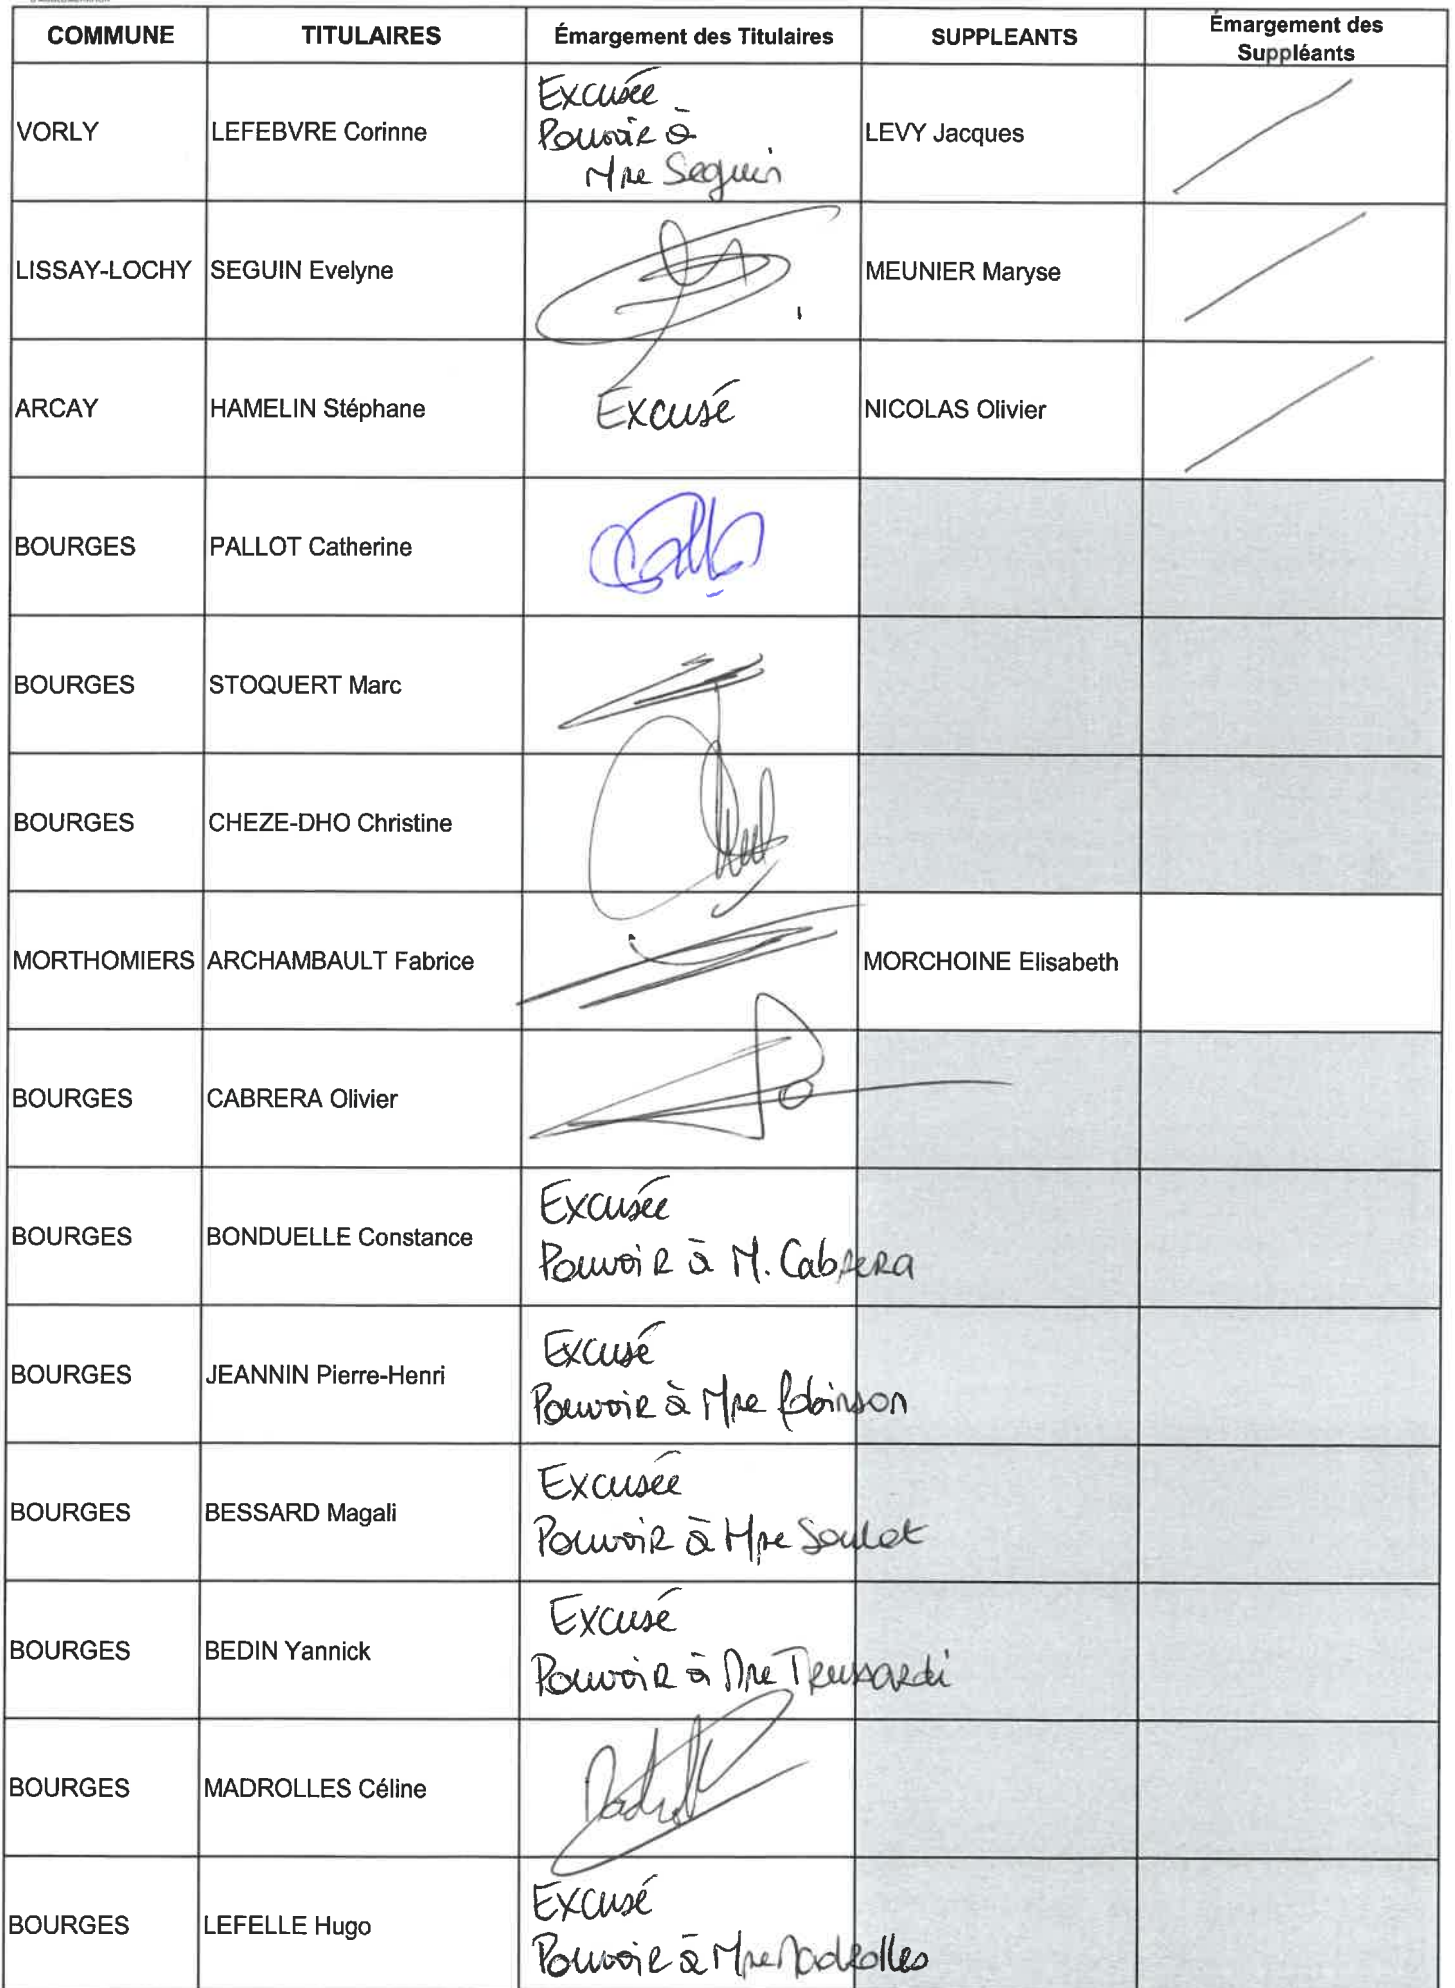 COMMUNE TITULAIRES Émargement des Titulaires SUPPLEANTS Émargement des
Suppléants
VORLY LEFEBVRE Corinne Excusée LEVY Jacques
Pouvoir à
Mme Seguin
LISSAY-LOCHY SEGUIN Evelyne MEUNIER Maryse
ARCAY HAMELIN Stéphane Excusé NICOLAS Olivier
BOURGES PALLOT Catherine
BOURGES STOQUERT Marc
BOURGES CHEZE-DHO Christine
MORTHOMIERS ARCHAMBAULT Fabrice MORCHOINE Elisabeth
BOURGES CABRERA Olivier
BOURGES BONDUELLE Constance Excusée
Pouvoir à M. Cabrera
BOURGES JEANNIN Pierre-Henri Excusé
Pouvoir à Mme Robinson
BOURGES BESSARD Magali Excusée
Pouvoir à Mme Soulat
BOURGES BEDIN Yannick Excusé
Pouvoir à Mme Trussardi
BOURGES MADROLLES Céline
BOURGES LEFELLE Hugo Excusé
Pouvoir à Mme Madrolles